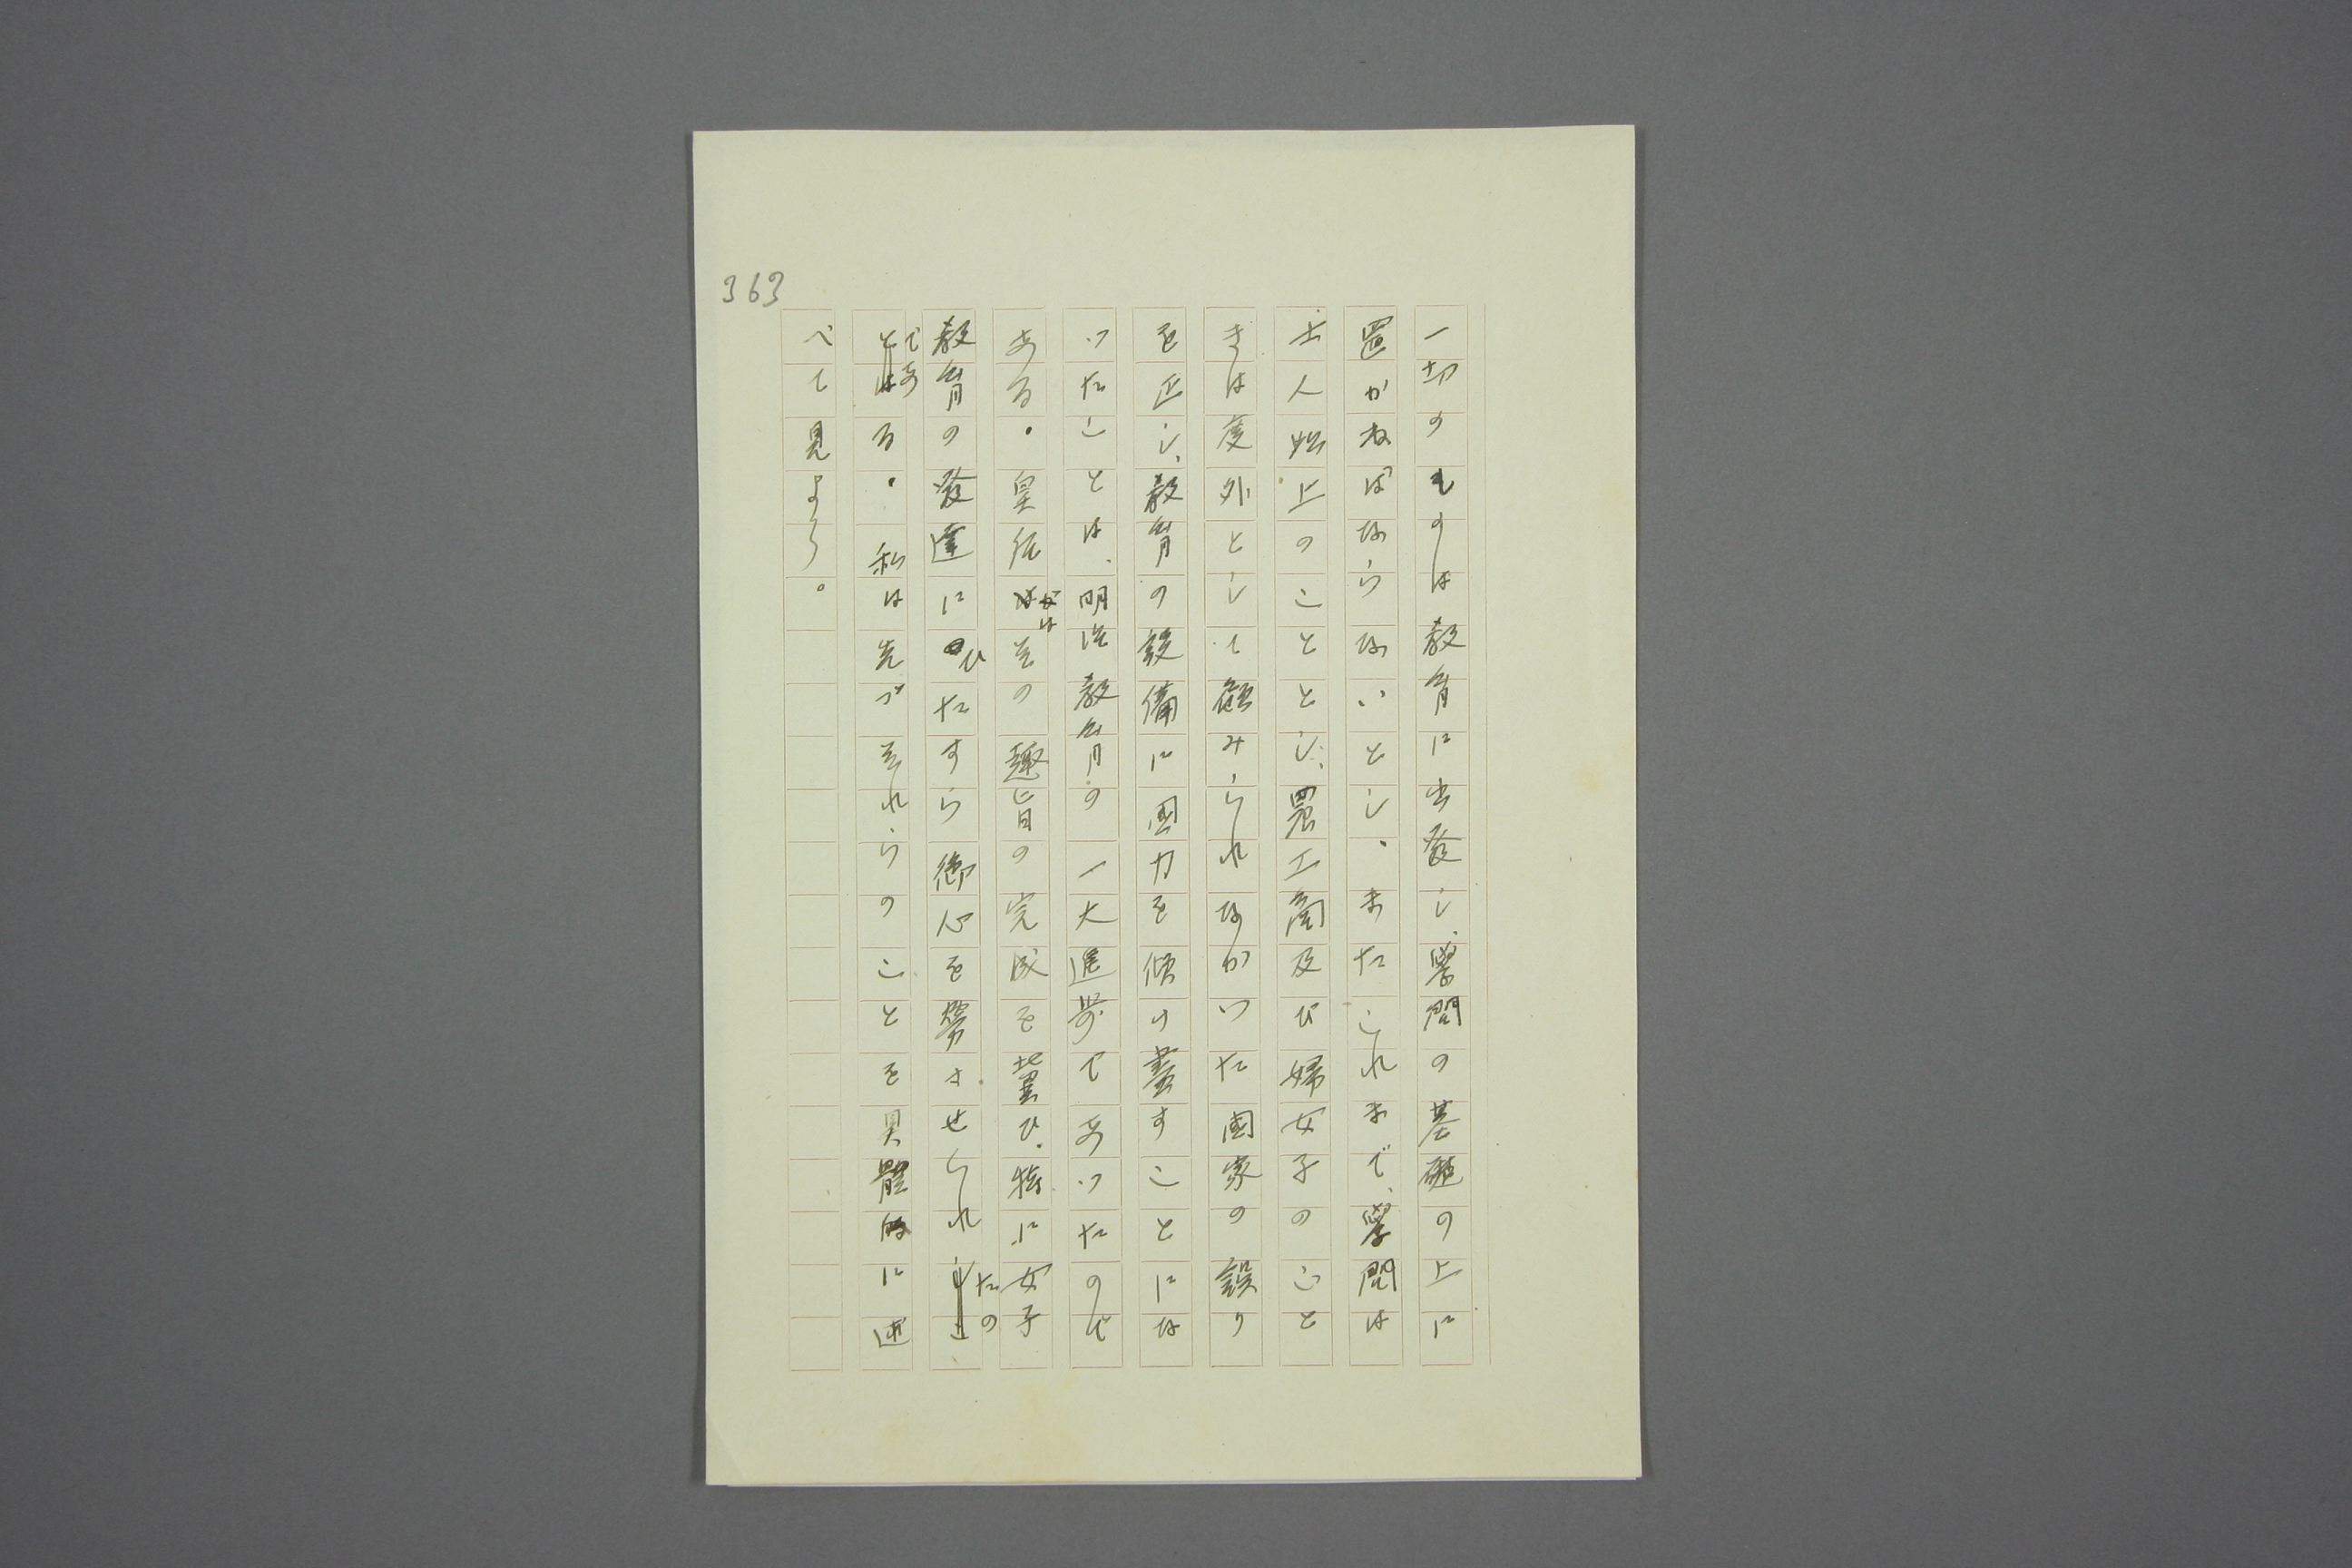 363
一切のものは教育に出發し、學問の基礎の上に
置かねばならないとし、またこれまで、學問は
士人始上のこととし、農工商及び婦女子のこと
きは度外として顧みられなかつた國家の誤り
を正し、教育の設備に国力を傾け盡すことにな
つたことは、明治教育の一大進歩であつたので
ある。皇后がはその趣旨の完成を冀ひ、特に女子
教育の發達にひたすら御心を勞させられたの
である。私は先づそれらのことを具體的に述
べて見よう。